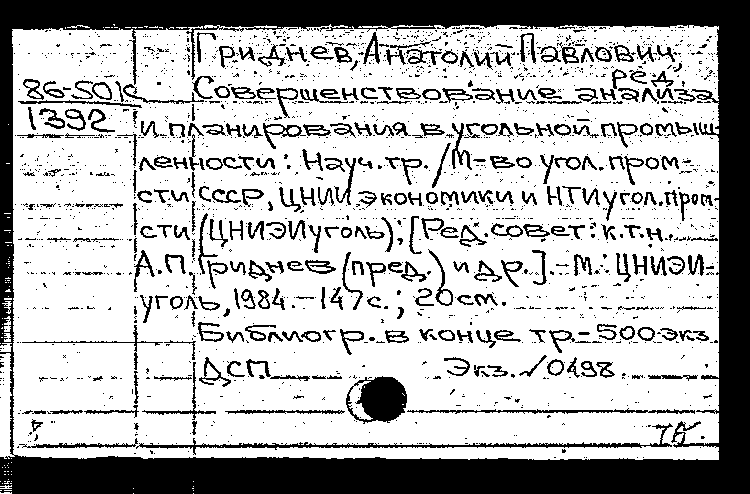 Гриднев, Анатолий Павлович,
ред.
86-501с
1392
Совершенствование анализа
и планирования в угольной промыш-
ленности: Науч. тр. / М-во угол. пром-
сти СССР, ЦНИИ экономики и НТИ угол. пром-
сти (ЦНИЭИуголь); [Ред. совет: к.т.н.
А.П. Гриднев (пред.) и др.]. - М.: ЦНИЭИ-
уголь, 1984. - 147 с.; 20 см.
Библиогр. в конце тр. - 500 экз.
ДСП Экз. № 0498